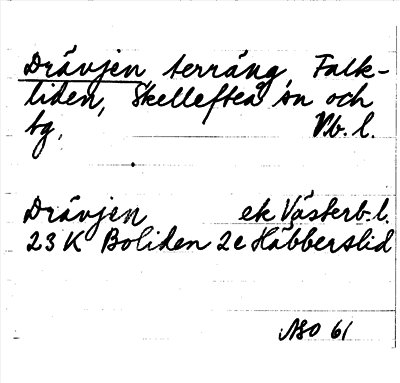 Drävjen, terräng, Falk-
liden, Skellefteå sn och
tg, Vb. l.
Drävjen ek Västerb. l.
23 K Boliden 2e Häbberslid
NSO 61